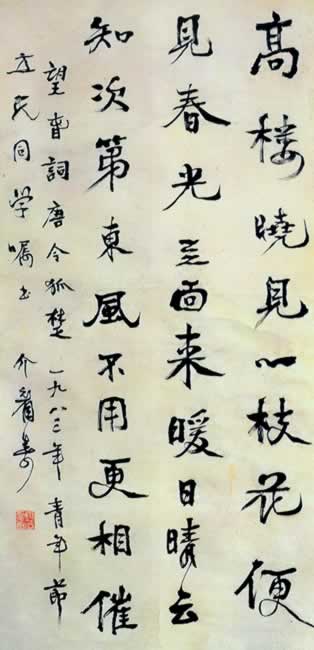 高樓曉見一枝花便
見春光亖面来暖日晴云
知次第東風不用更相催
望春詞唐令狐楚 一九八三年青年節
立民同学嘱书 介眉